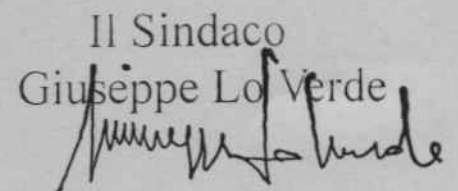 Il Sindaco
Giuseppe Lo Verde
Giuseppe Lo Verde